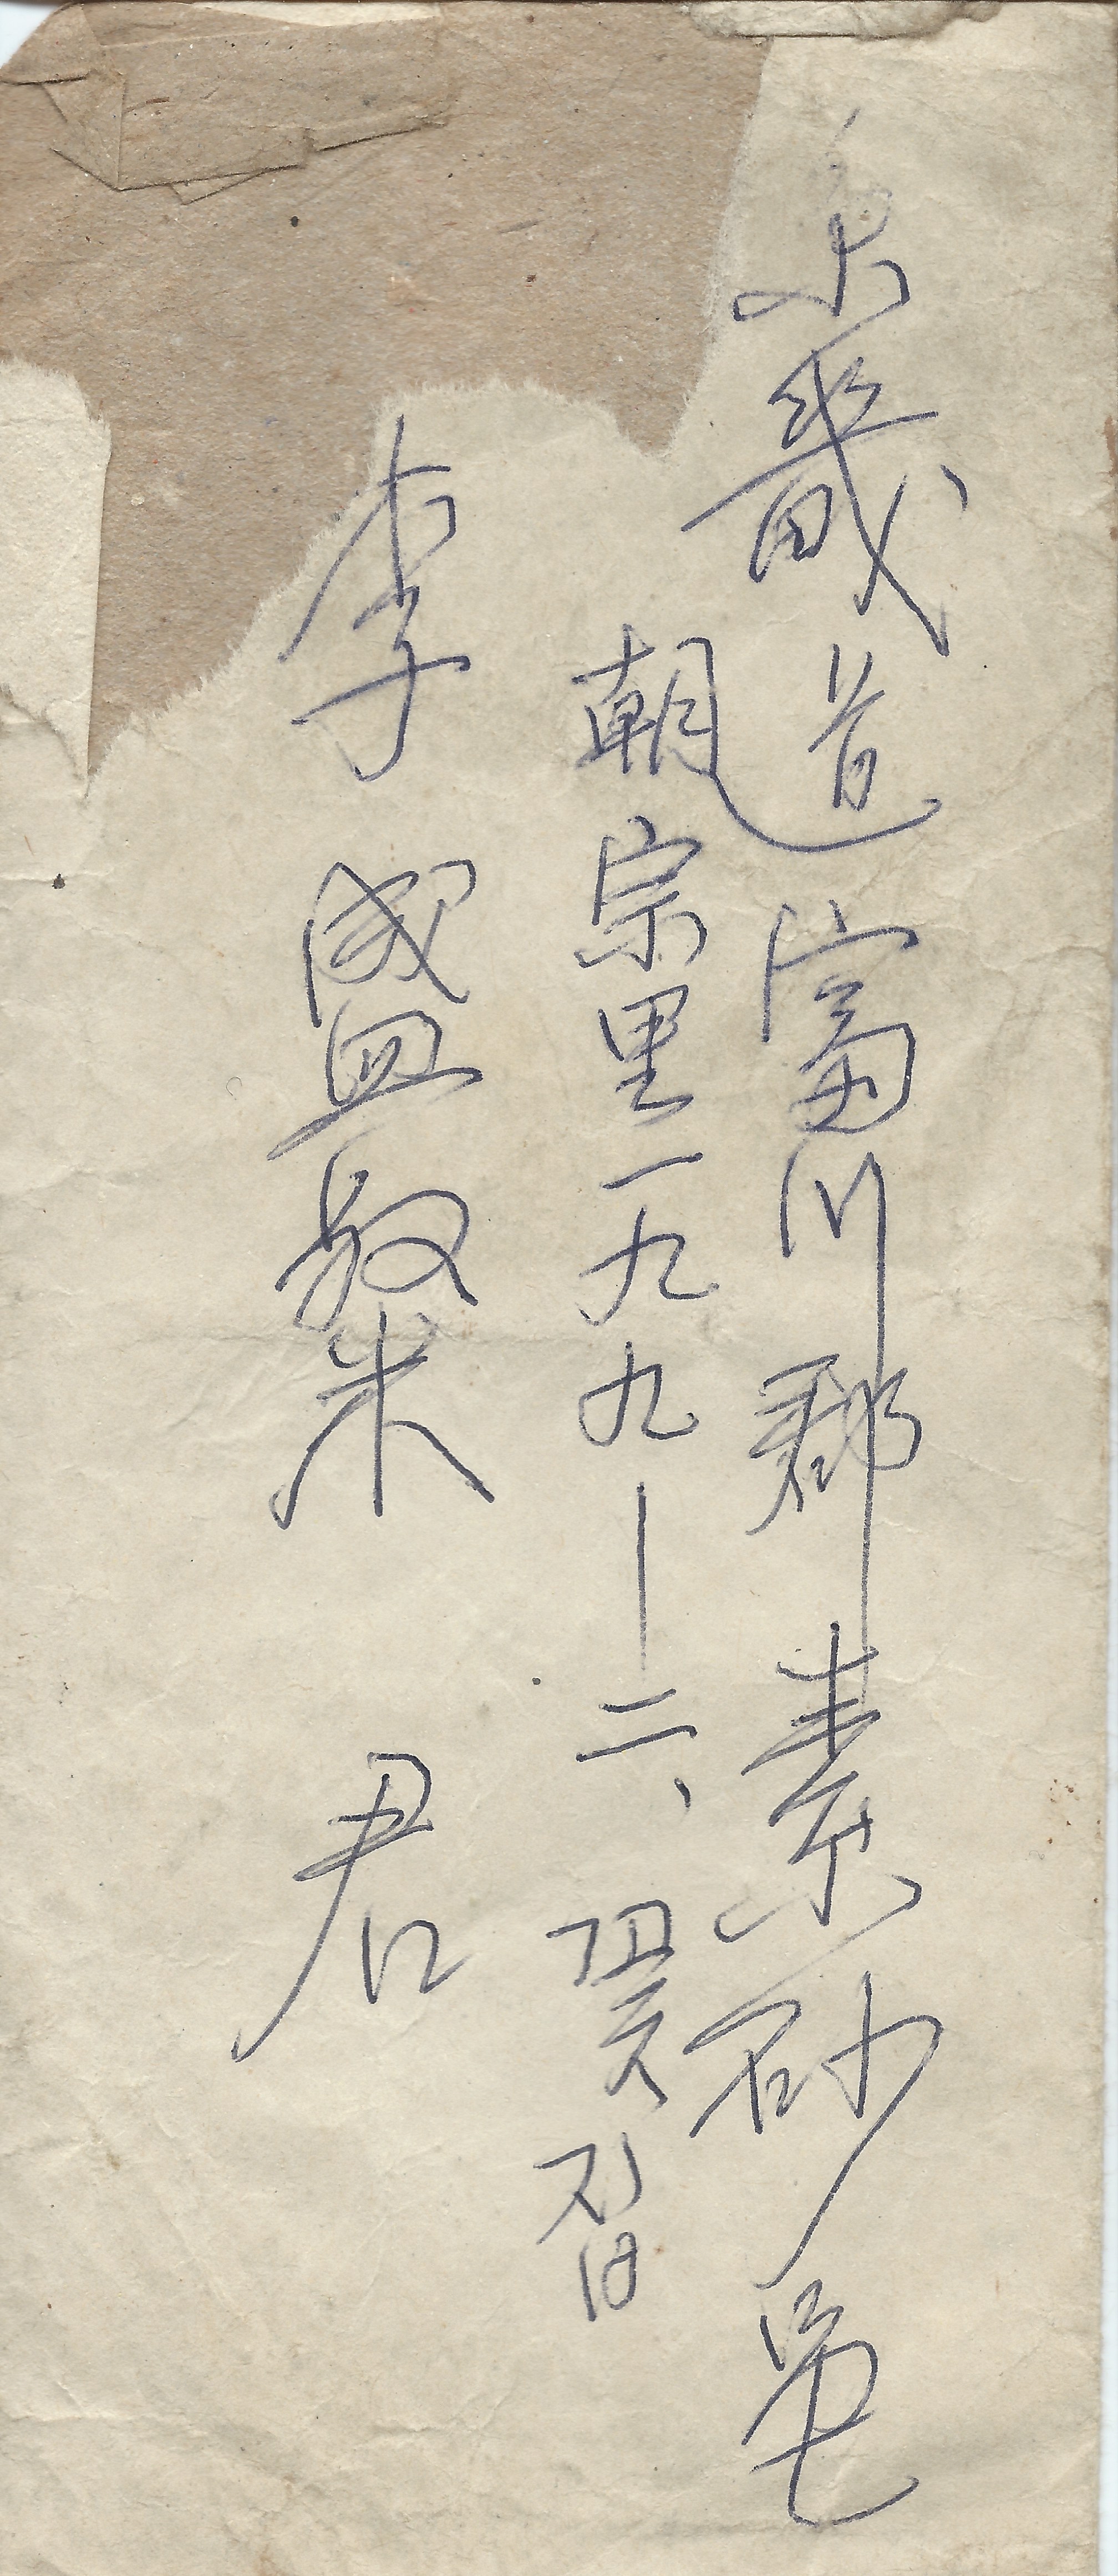 京畿道富川郡素砂邑
朝宗里一九九—二、꽃집
李盛粲 君